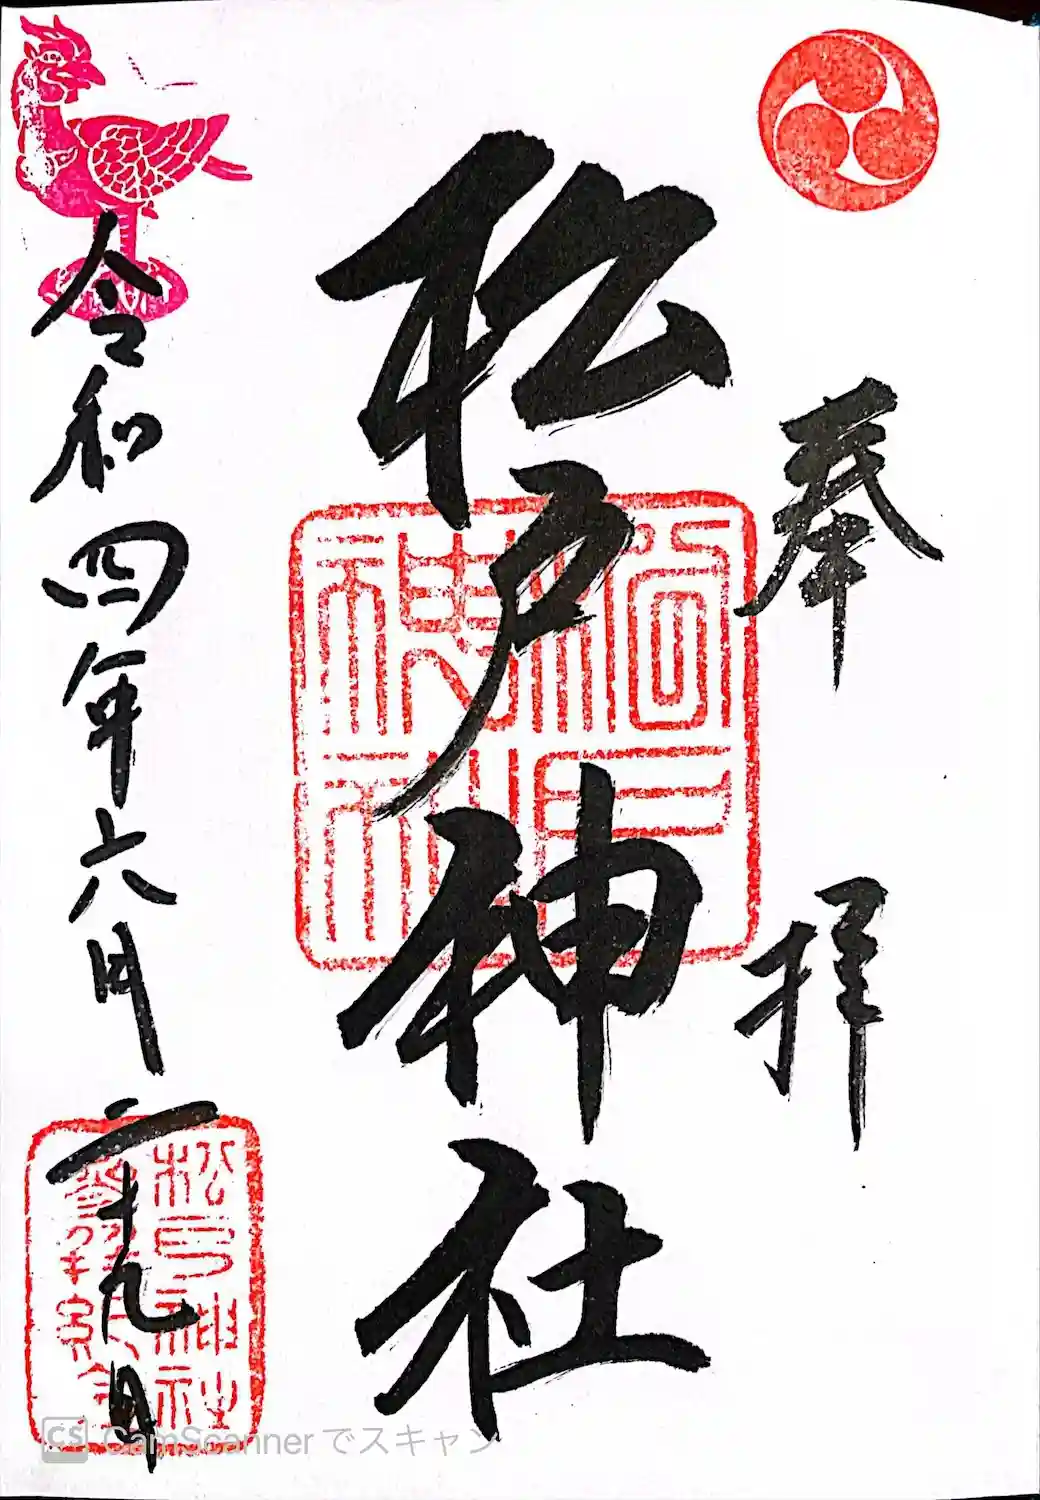 奉拝
松戸神社
松戸神社
令和四年六月二十九日
CS CamScanner でスキャン